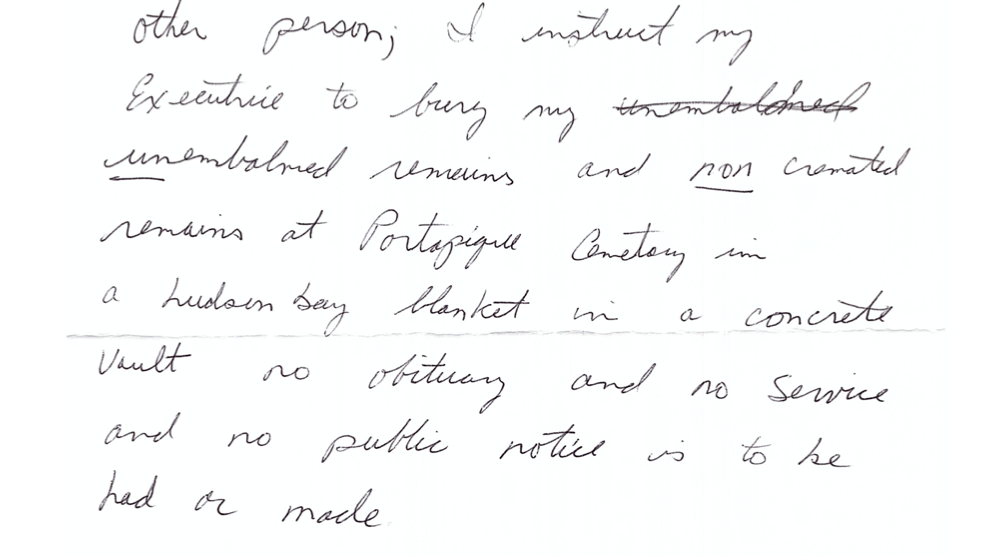 other person; I instruct my
Executrix to bury my unembalmed
unembalmed remains and non cremated
remains at Portapique Cemetary in
a hudson bay blanket in a concrete
vault no obituary and no service
and no public notice is to be
had or made